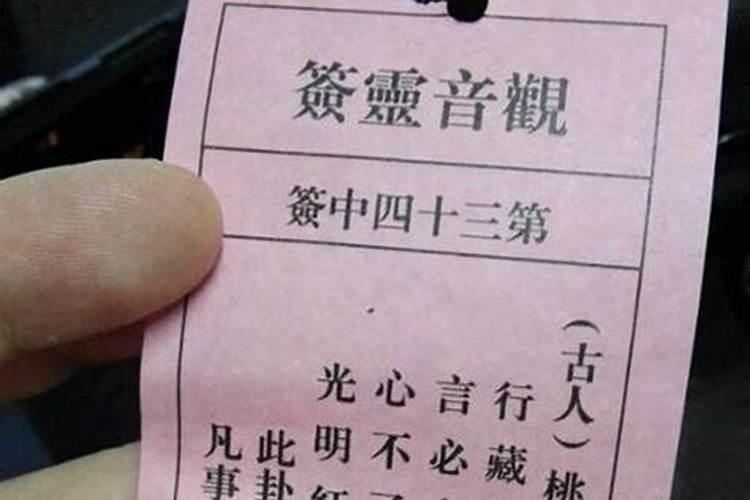 觀音靈簽
第三十四中簽
(古人)桃
行藏
言必
心不
光明紅
此卦
凡事